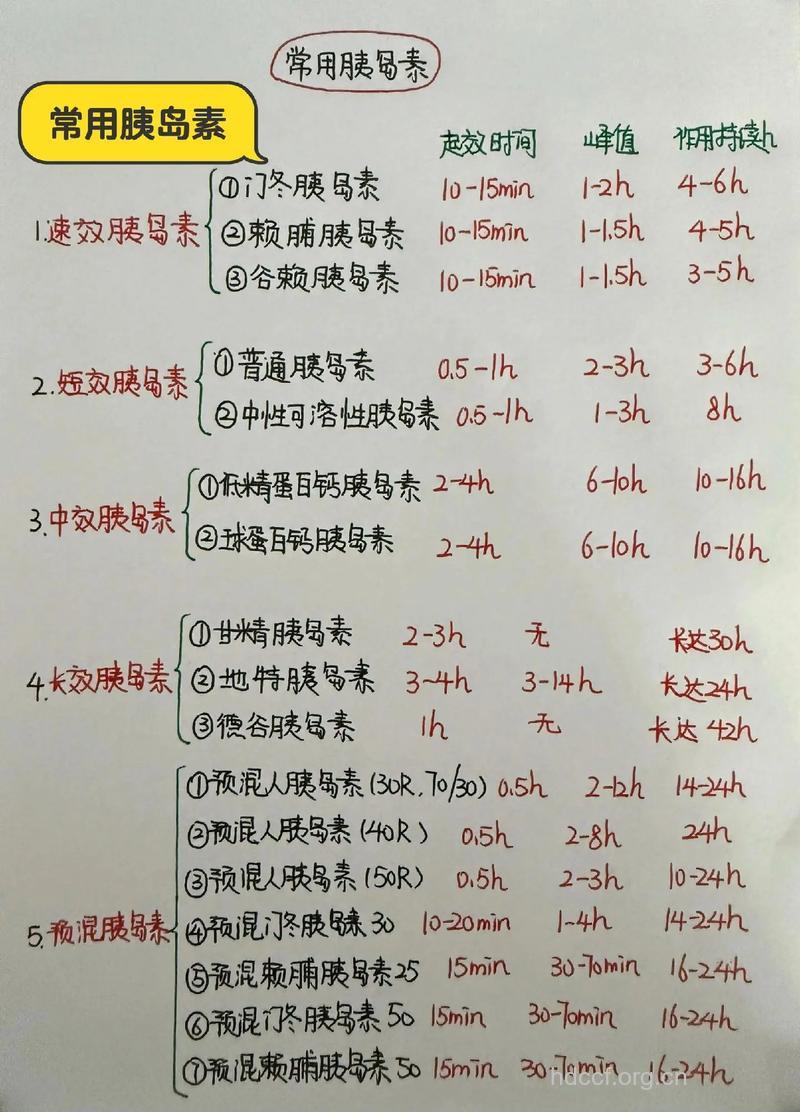 常用胰岛素
常用胰岛素
起效时间 峰值 作用持续h
1.速效胰岛素
①门冬胰岛素 10-15min 1-2h 4-6h
②赖脯胰岛素 10-15min 1-1.5h 4-5h
③谷赖胰岛素 10-15min 1-1.5h 3-5h
2.短效胰岛素
①普通胰岛素 0.5-1h 2-3h 3-6h
②中性可溶性胰岛素 0.5-1h 1-3h 8h
3.中效胰岛素
①低精蛋白钙胰岛素 2-4h 6-10h 10-16h
②球蛋白钙胰岛素 2-4h 6-10h 10-16h
4.长效胰岛素
①甘精胰岛素 2-3h 无 长达30h
②地特胰岛素 3-4h 3-14h 长达24h
③德谷胰岛素 1h 无 长达42h
5.预混胰岛素
①预混人胰岛素(30R,70/30) 0.5h 2-12h 14-24h
②预混人胰岛素(40R) 0.5h 2-8h 24h
③预混人胰岛素(50R) 0.5h 2-3h 10-24h
④预混门冬胰岛素30 10-20min 1-4h 14-24h
⑤预混赖脯胰岛素25 15min 30-70min 16-24h
⑥预混门冬胰岛素50 15min 30-70min 16-24h
⑦预混赖脯胰岛素50 15min 30-70min 16-24h
hdccf.org.cn